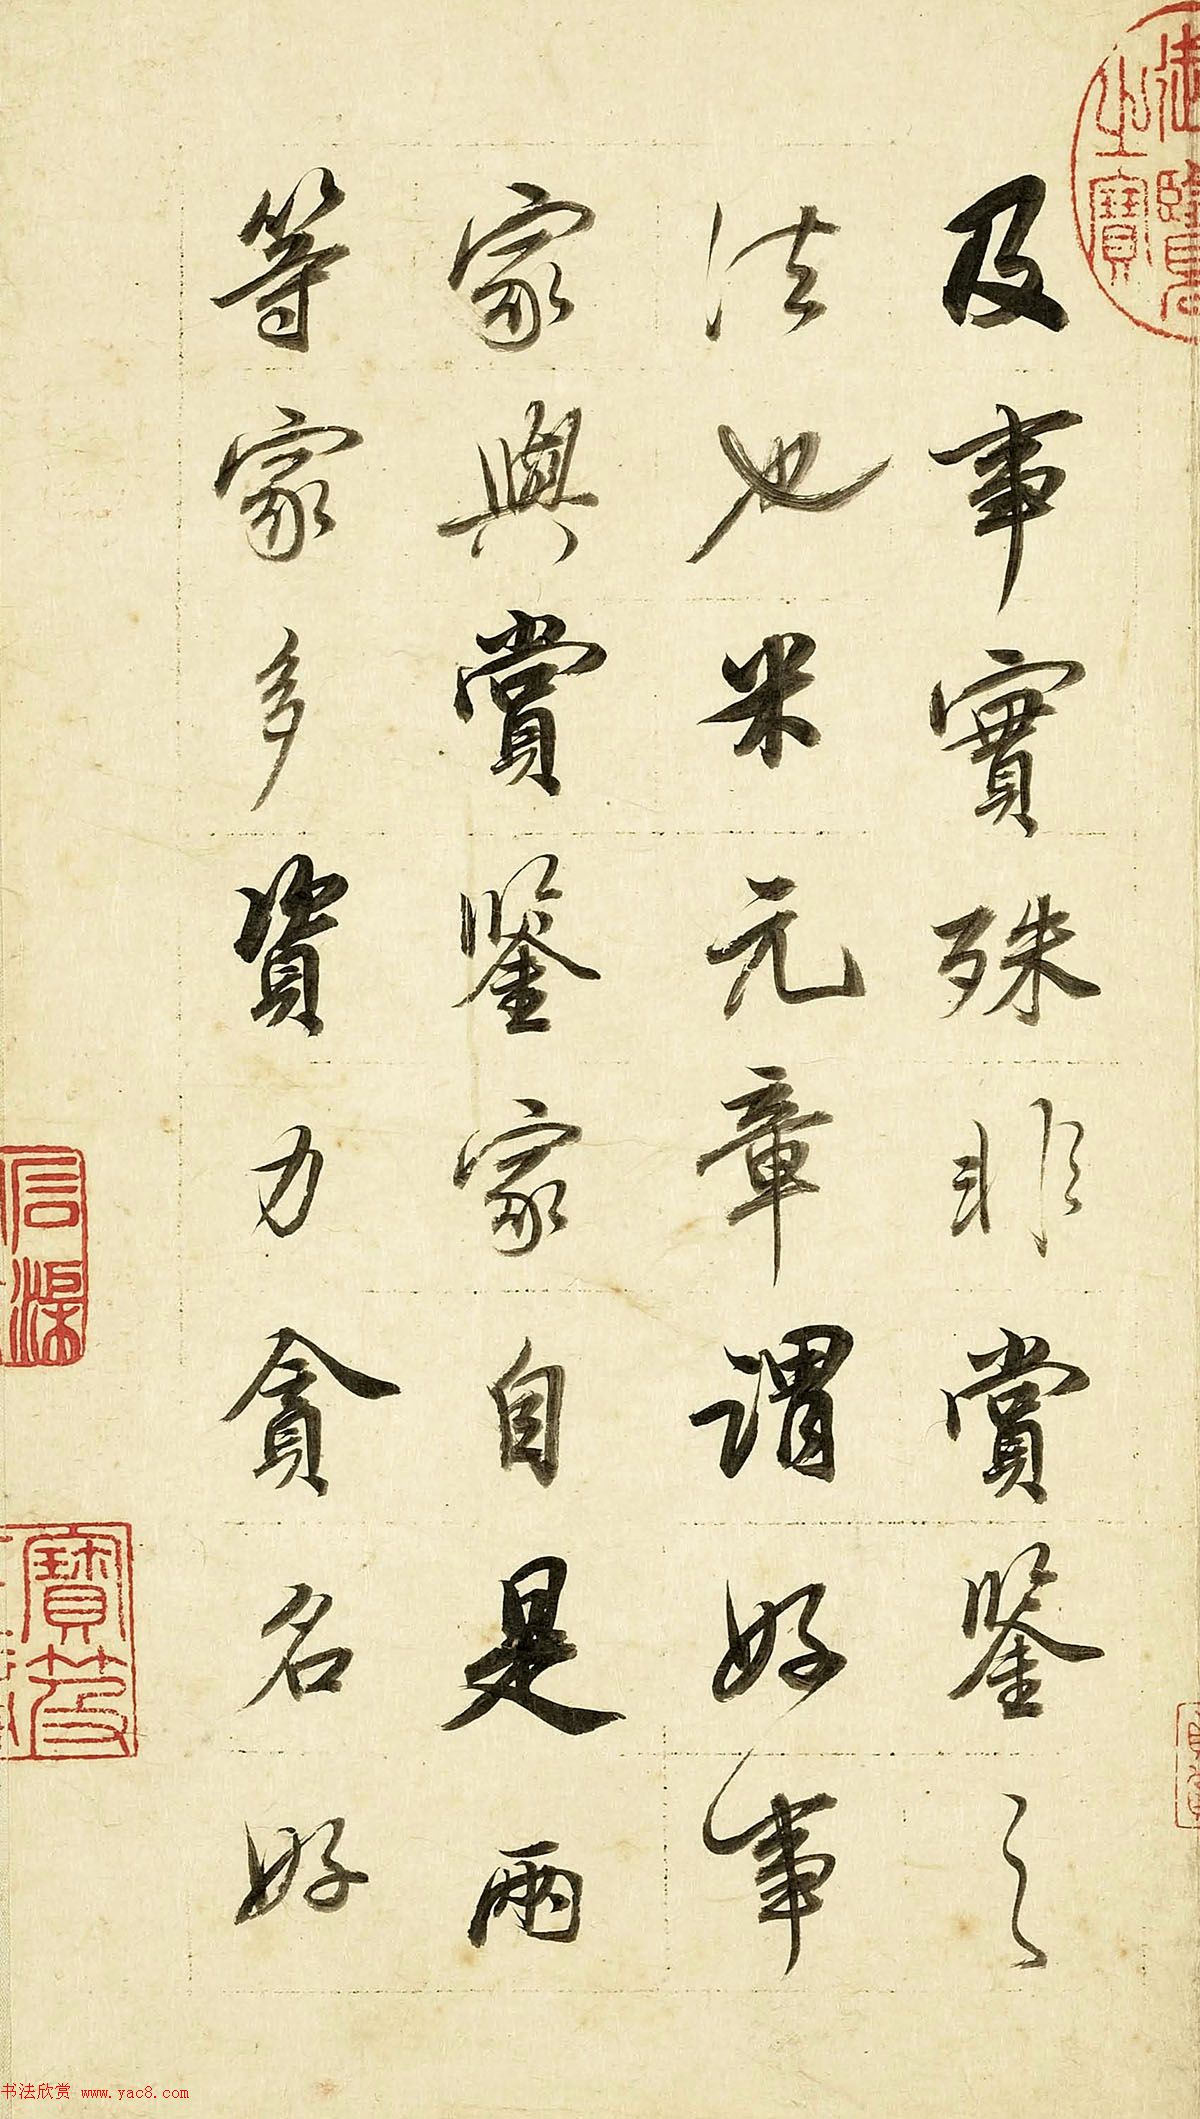 及事實殊非賞鑒之
法也米元章謂好事
家與賞鑒家自是兩
等家多資力貪名好
御覽之寶
寶笈
书法欣赏 www.yac8.com